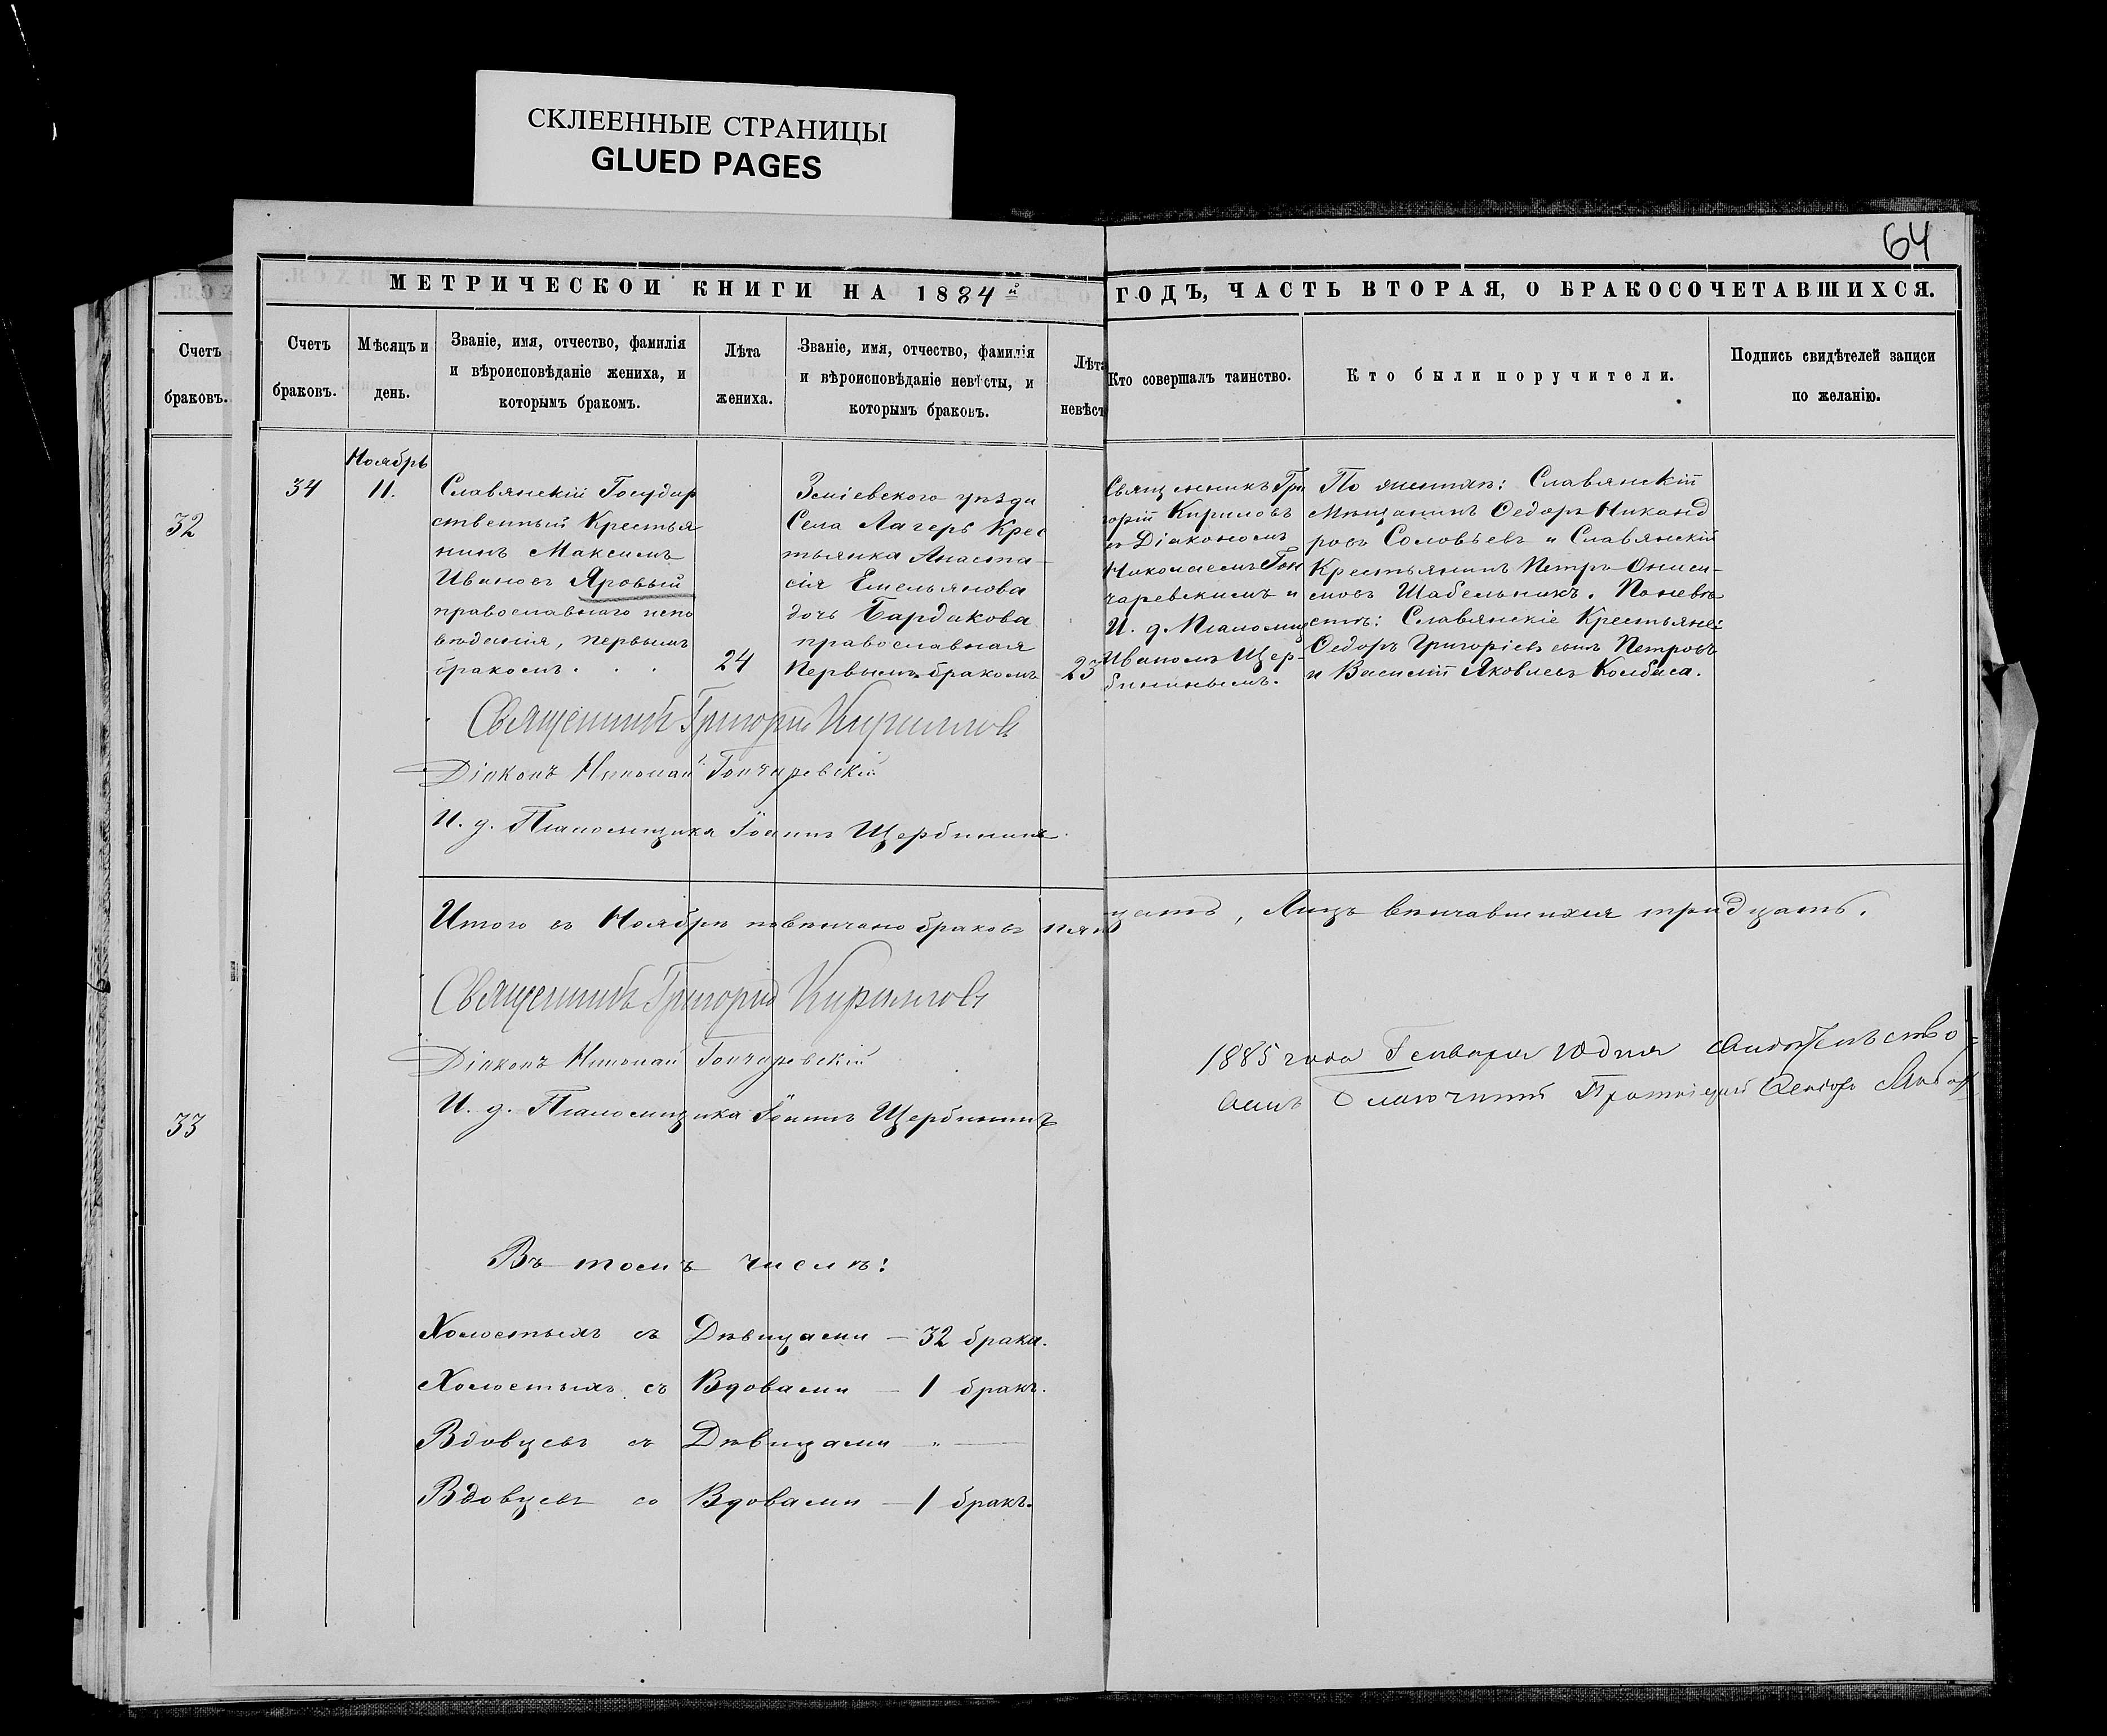 СКЛЕЕННЫЕ СТРАНИЦЫ
GLUED PAGES
64
МЕТРИЧЕСКОЙ КНИГИ НА 1884й ГОДЪ, ЧАСТЬ ВТОРАЯ, О БРАКОСОЧЕТАВШИХСЯ.
Счетъ
браковъ.
32
33
Счетъ
браковъ.
Мѣсяцъ и
день.
Званіе, имя, отчество, фамилія
и вѣроисповѣданіе жениха, и
которымъ бракомъ.
Лѣта
жениха.
Званіе, имя, отчество, фамилія
и вѣроисповѣданіе невѣсты, и
которымъ браковъ.
Лѣта
невѣст
Кто совершалъ таинство.
Кто были поручители.
Подпись свидѣтелей записи
по желанію.
34
Ноябрь
11.
Славянскій Государ
ственный Крестья
нинъ Максимъ
Ивановъ Яровый
православнаго испо
вѣданія, первымъ
бракомъ.
24
Зміевского уѣзда
Села Лагерь Крес
тьянка Анаста-
сія Емельянова
дочь Бардакова
православная
Первымъ бракомъ
23
Священникъ Гри
горій Кириловъ
съ Діакономъ
Николаемъ Гон
чаревскимъ и
И. д. Псаломщ
Иваномъ Щер-
бининымъ.
По женихѣ: Славянскій
Мѣщанинъ Ѳедоръ Никанд
ровъ Соловьевъ и Славянскій
Крестьянинъ Петръ Ониси-
мовъ Шабельникъ. По невѣ
стѣ: Славянскіе Крестьяне:
Ѳедоръ Григоріевъ сынъ Петровъ
и Василій Яковлевъ Колбаса.
Священникъ Григорій Кириловъ
Діаконъ Николай Гончаревскій
И. д. Псаломщика Іоаннъ Щербининъ.
Итого въ Ноябрѣ повѣнчано браковъ пят
цать, Лицъ вѣнчавшихся тридцать.
Священникъ Григорій Кириловъ
Діаконъ Николай Гончаревскій
И. д. Псаломщика Іоаннъ Щербининъ
1885 года Генваря дня свидѣтельство-
валъ Благочинный Протоіерей
Въ томъ числѣ:
Холостыхъ съ Дѣвицами — 32 брака.
Холостыхъ съ Вдовами — 1 бракъ.
Вдовцевъ съ Дѣвицами — „ —
Вдовцевъ со Вдовами — 1 бракъ.